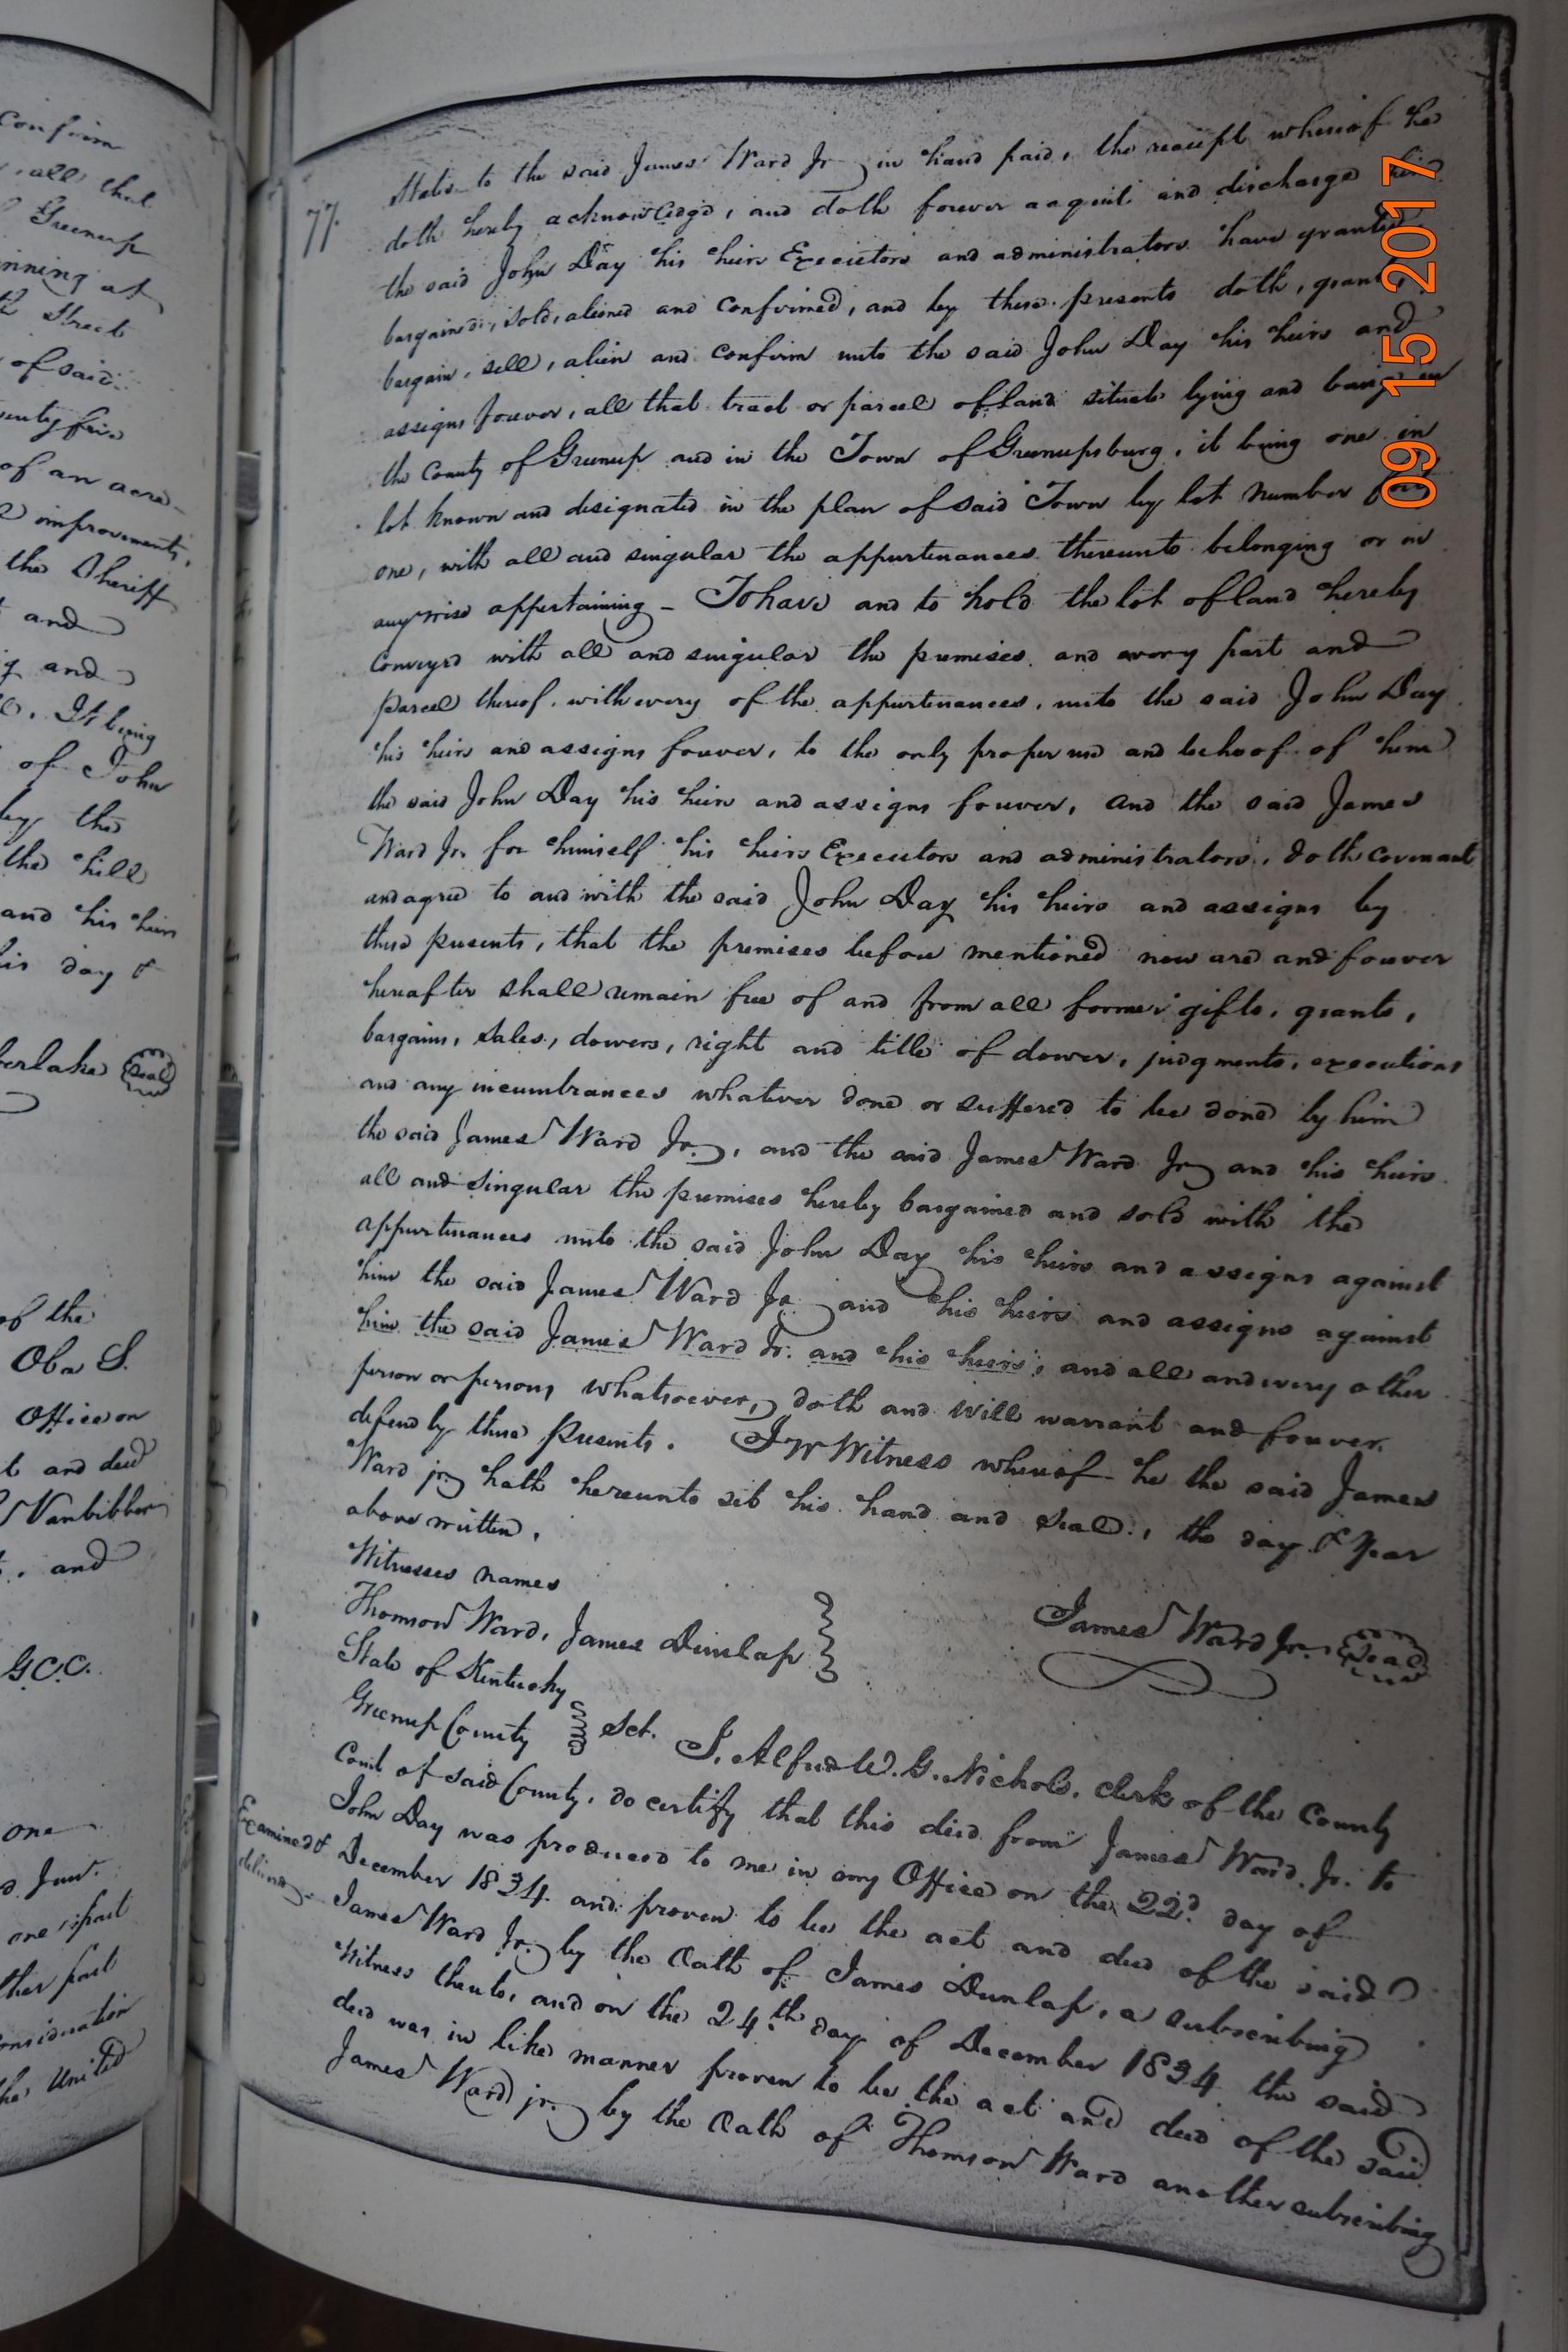 confirm
, all that
Greenup
inning at
Street
of said
of an acre
improvements,
the Sheriff
and
and
It being
of John
by the
the hill
and his heirs
day &
erlake Seal
of the
Oba S.
Office on
and deed
Vanbibber
and
G.C.C.
one
one part
other part
onsideration
the United
77.
States to the said James Ward Jr in hand paid, the receipt whereof he
doth hereby acknowledge, and doth forever acquit and discharge him
the said John Day his heirs Executors and administrators have granted
bargained, sold, aliened and confirmed, and by these presents doth, grant
bargain, sell, alien and confirm unto the said John Day his heirs and
assigns forever, all that tract or parcel of land situate lying and being in
the County of Greenup and in the Town of Greenupsburg, it being one in
lot known and designated in the plan of said Town by lot number
one, with all and singular the appurtenances thereunto belonging or in
anywise appertaining - To have and to hold the lot of land hereby
conveyed with all and singular the premises, and every part and
parcel thereof, with every of the appurtenances, unto the said John Day
his heirs and assigns forever, to the only proper use and behoof of him
the said John Day his heirs and assigns forever, and the said James
Ward Jr. for himself his heirs Executors and administrators, doth covenant
and agree to and with the said John Day his heirs and assigns by
these presents, that the premises before mentioned now are and forever
hereafter shall remain free of and from all former gifts, grants,
bargains, sales, dowers, right and title of dower, judgments, executions
and any incumbrances whatever done or suffered to be done by him
the said James Ward Jr., and the said James Ward Jr and his heirs
all and singular the premises hereby bargained and sold with the
appurtenances unto the said John Day his heirs and assigns against
him the said James Ward Jr. and his heirs and assigns against
him the said James Ward Jr. and his heirs, and all and every other
person or persons whatsoever, doth and will warrant and forever
defend by these presents. In Witness whereof he the said James
Ward jr hath hereunto set his hand and seal, the day & year
above written.
Witnesses names
Thomson Ward, James Dunlap
James Ward Jr. Seal
State of Kentucky
Greenup County Sct. I, Alfred W. G. Nichols, clerk of the County
Court of said County, do certify that this deed from James Ward Jr. to
John Day was produced to me in my Office on the 22d. day of
Examined & delivered
December 1834 and proven to be the act and deed of the said
James Ward Jr. by the Oath of James Dunlap, a subscribing
Witness thereto, and on the 24th day of December 1834 the said
deed was in like manner proven to be the act and deed of the said
James Ward jr. by the Oath of Thomson Ward another subscribing
09 15 2017